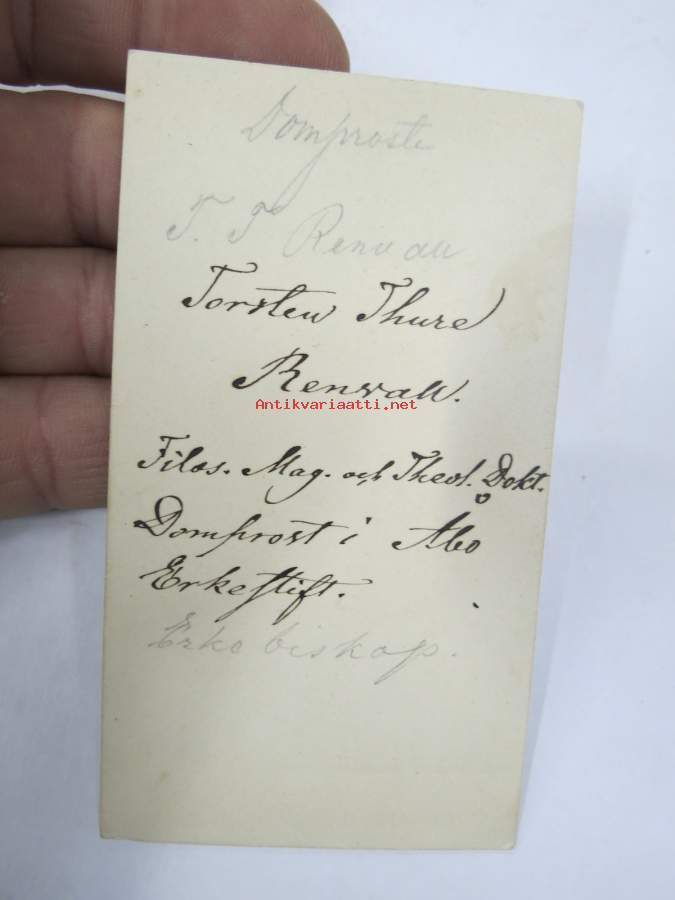 Domprosten
T. T. Renvall
Torsten Thure
Renvall.
Antikvariaatti.net
Filos. Mag. och Theol. Dokt.
Domprost i Åbo
Erkestift.
Erkebiskop.